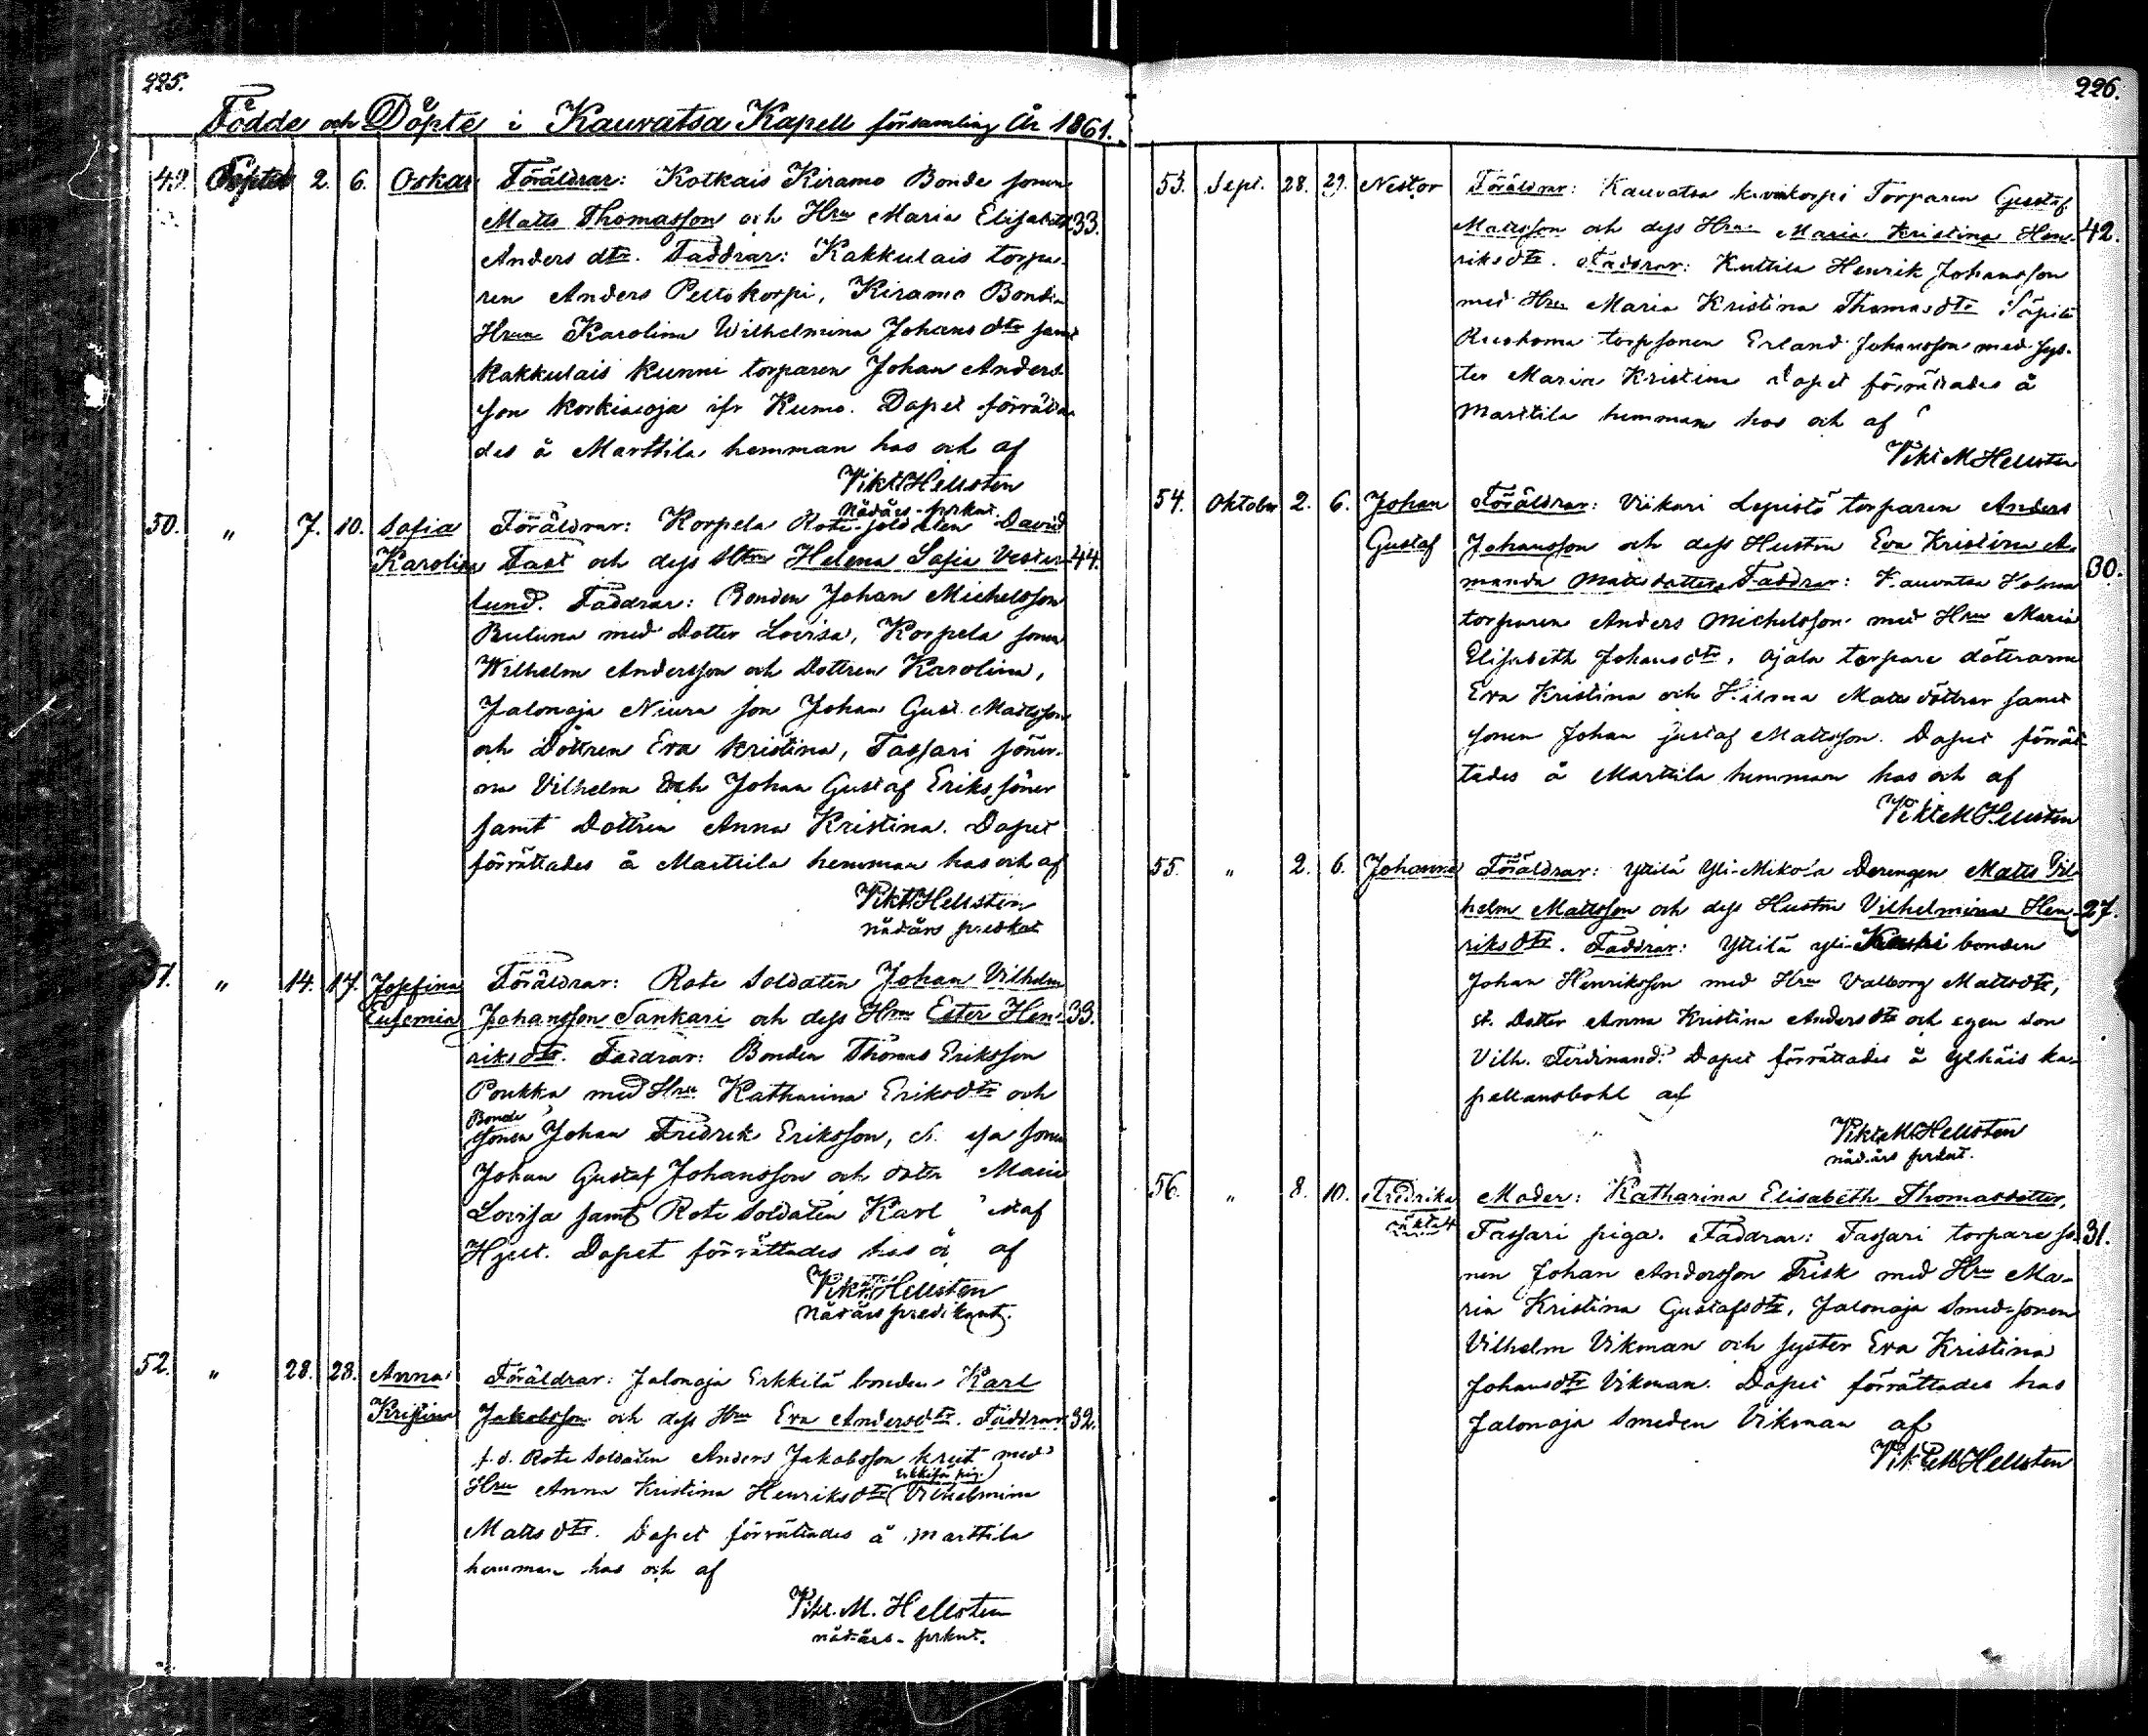 225.
Födde och Döpte i Kauvatsa Kapell församling År 1861.
49. Septeb 2. 6. Oskar Föräldrar: Kotkais Kiramo Bonde sonen
Matts Thomasson och Hru Maria Elisabeth 33.
Anders dtr. Faddrar: Kakkulais torpa-
ren Anders Peltokorpi, Kiramo Bonde
Hrun Karolina Wilhelmina Johans dtr samt
Kakkulais Kunni torparen Johan Anders-
son Korkiaoja ifr Kumo. Dopet förrätta-
des å Marttila hemman hos och af
Vikt. Hellsten
Nådårs-prknt.
50. " 7. 10. Sofia Föräldrar: Korpela Rote-soldaten David
Karolina Fast och dess Htru Helena Sofia Vester- 44.
lund. Faddrar: Bonden Johan Michelsson
med Dotter Lovisa, Korpela sonen
Wilhelm Andersson och Dottren Karolina,
Jalonoja Niura son Johan Gust. Mattsson
och Dottren Eva Kristina, Tassari söner-
na Vilhelm och Johan Gustaf Eriks söner
samt Dottren Anna Kristina. Dopet
förrättades å Marttila hemman hos och af
Vikt. Hellsten
nådårs predkat
51. " 14. 17. Josefina Föräldrar: Rote Soldaten Johan Vilhelm
Eufemia Johansson Sankari och dess Hru Ester Hen- 33.
riksdtr. Faddrar: Bonden Thomas Eriksson
Poukka med Hru Katharina Eriksdtr och
Bonde
sonen Johan Fredrik Eriksson, sonen
Johan Gustaf Johansson och Maria
Lovisa samt Rote Soldaten Karl
Hjelt. Dopet förrättades hos af
Vikt. Hellsten
Nådårs predikant.
52. " 28. 28. Anna Föräldrar: Jalonoja Erkkilä bonden Karl
Kristina Jakobsson och dess Hru Eva Andersdtr. Faddrar 32.
f.d. Rote Soldaten Anders Jakobsson Krut med
Erkkilä pig.
Hru Anna Kristina Henriksdtr Vilhelmina
Matts dtr. Dopet förrättades å Marttila
hemman hos och af
Vikt. M. Hellsten
nådårs-prknt.
226.
53. Sept. 28. 29. Nestor Föräldrar: Kauvatsa Torparen Gustaf
Mattsson och dess Hru Maria Kristina Hen- 42.
riks dtr. Faddrar: Kuttila Henrik Johansson
med Hru Maria Kristina Thomasdtr
torpsonen Erland Johansson med sys-
ter Maria Kristina Dopet förrättades å
Marttila hemman hos och af
Vikt M Hellsten
54. Oktober 2. 6. Johan Föräldrar: Viikari Lepistö torparen Anders
Gustaf Johansson och dess Hustru Eva Kristina A-
manda Matts dotter. Faddrar: Kauvatsa Holma 30.
torparen Anders Michelsson med Hru Maria
Elisabeth Johansdtr, Ojala torpare döttrarna
Eva Kristina och Hilma Matts döttrar samt
sonen Johan Gustaf Mattsson. Dopet förrät-
tades å Marttila hemman hos och af
Vikt M Hellsten
55. " 2. 6. Johanna Föräldrar: Yttilä Yli-Mikola Drengen Matts Vil-
helm Mattsson och dess Hustru Vilhelmina Hen- 27.
riksdtr. Faddrar: Yttilä Yli- bonden
Johan Henriksson med Hru Valborg Mattsdtr,
st. Dotter Anna Kristina Andersdtr och egen son
Vilh. Ferdinand. Dopet förrättades å Ylhäis ka-
pellansbohl af
Vikt M Hellsten
nådårs prknt.
56. " 8. 10. Fredrika Moder: Katharina Elisabeth Thomasdotter,
oäkta Tassari piga. Faddrar: Tassari torpare so- 31.
nen Johan Andersson Frisk med Hru Ma-
ria Kristina Gustafsdtr, Jalonoja Smedssonen
Vilhelm Vikman och syster Eva Kristina
Johansdtr Vikman. Dopet förrättades hos
Jalonoja Smeden Vikman af
Vikt M Hellsten